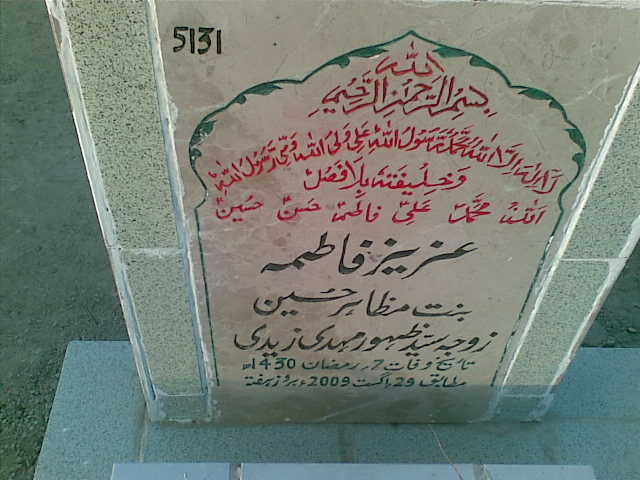 5131
الله
بسم الله الرحمن الرحيم
لا اله الا الله محمد رسول الله علی ولی الله وصی رسول الله
وخلیفته بلا فصل
الله محمد علی فاطمہ حسن حسین
عزیز فاطمہ
بنت مظاہر حسین
زوجہ سید ظہور مہدی زیدی
تاریخ وفات 7 رمضان 1430ھ
مطابق 29 اگست 2009ء بروز ہفتہ